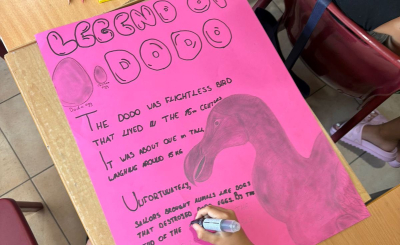 LEGEND OF
DODO
THE DODO WAS FLIGHTLESS BIRD
THAT LIVED IN THE 15TH CENTURY
IT WAS ABOUT ONE M TALL,
AROUND 15 KG
UNFORTUNATELY,
SAILORS BROUGHT ANIMALS LIKE DOGS
THAT DESTROYED EGGS,
OF THE